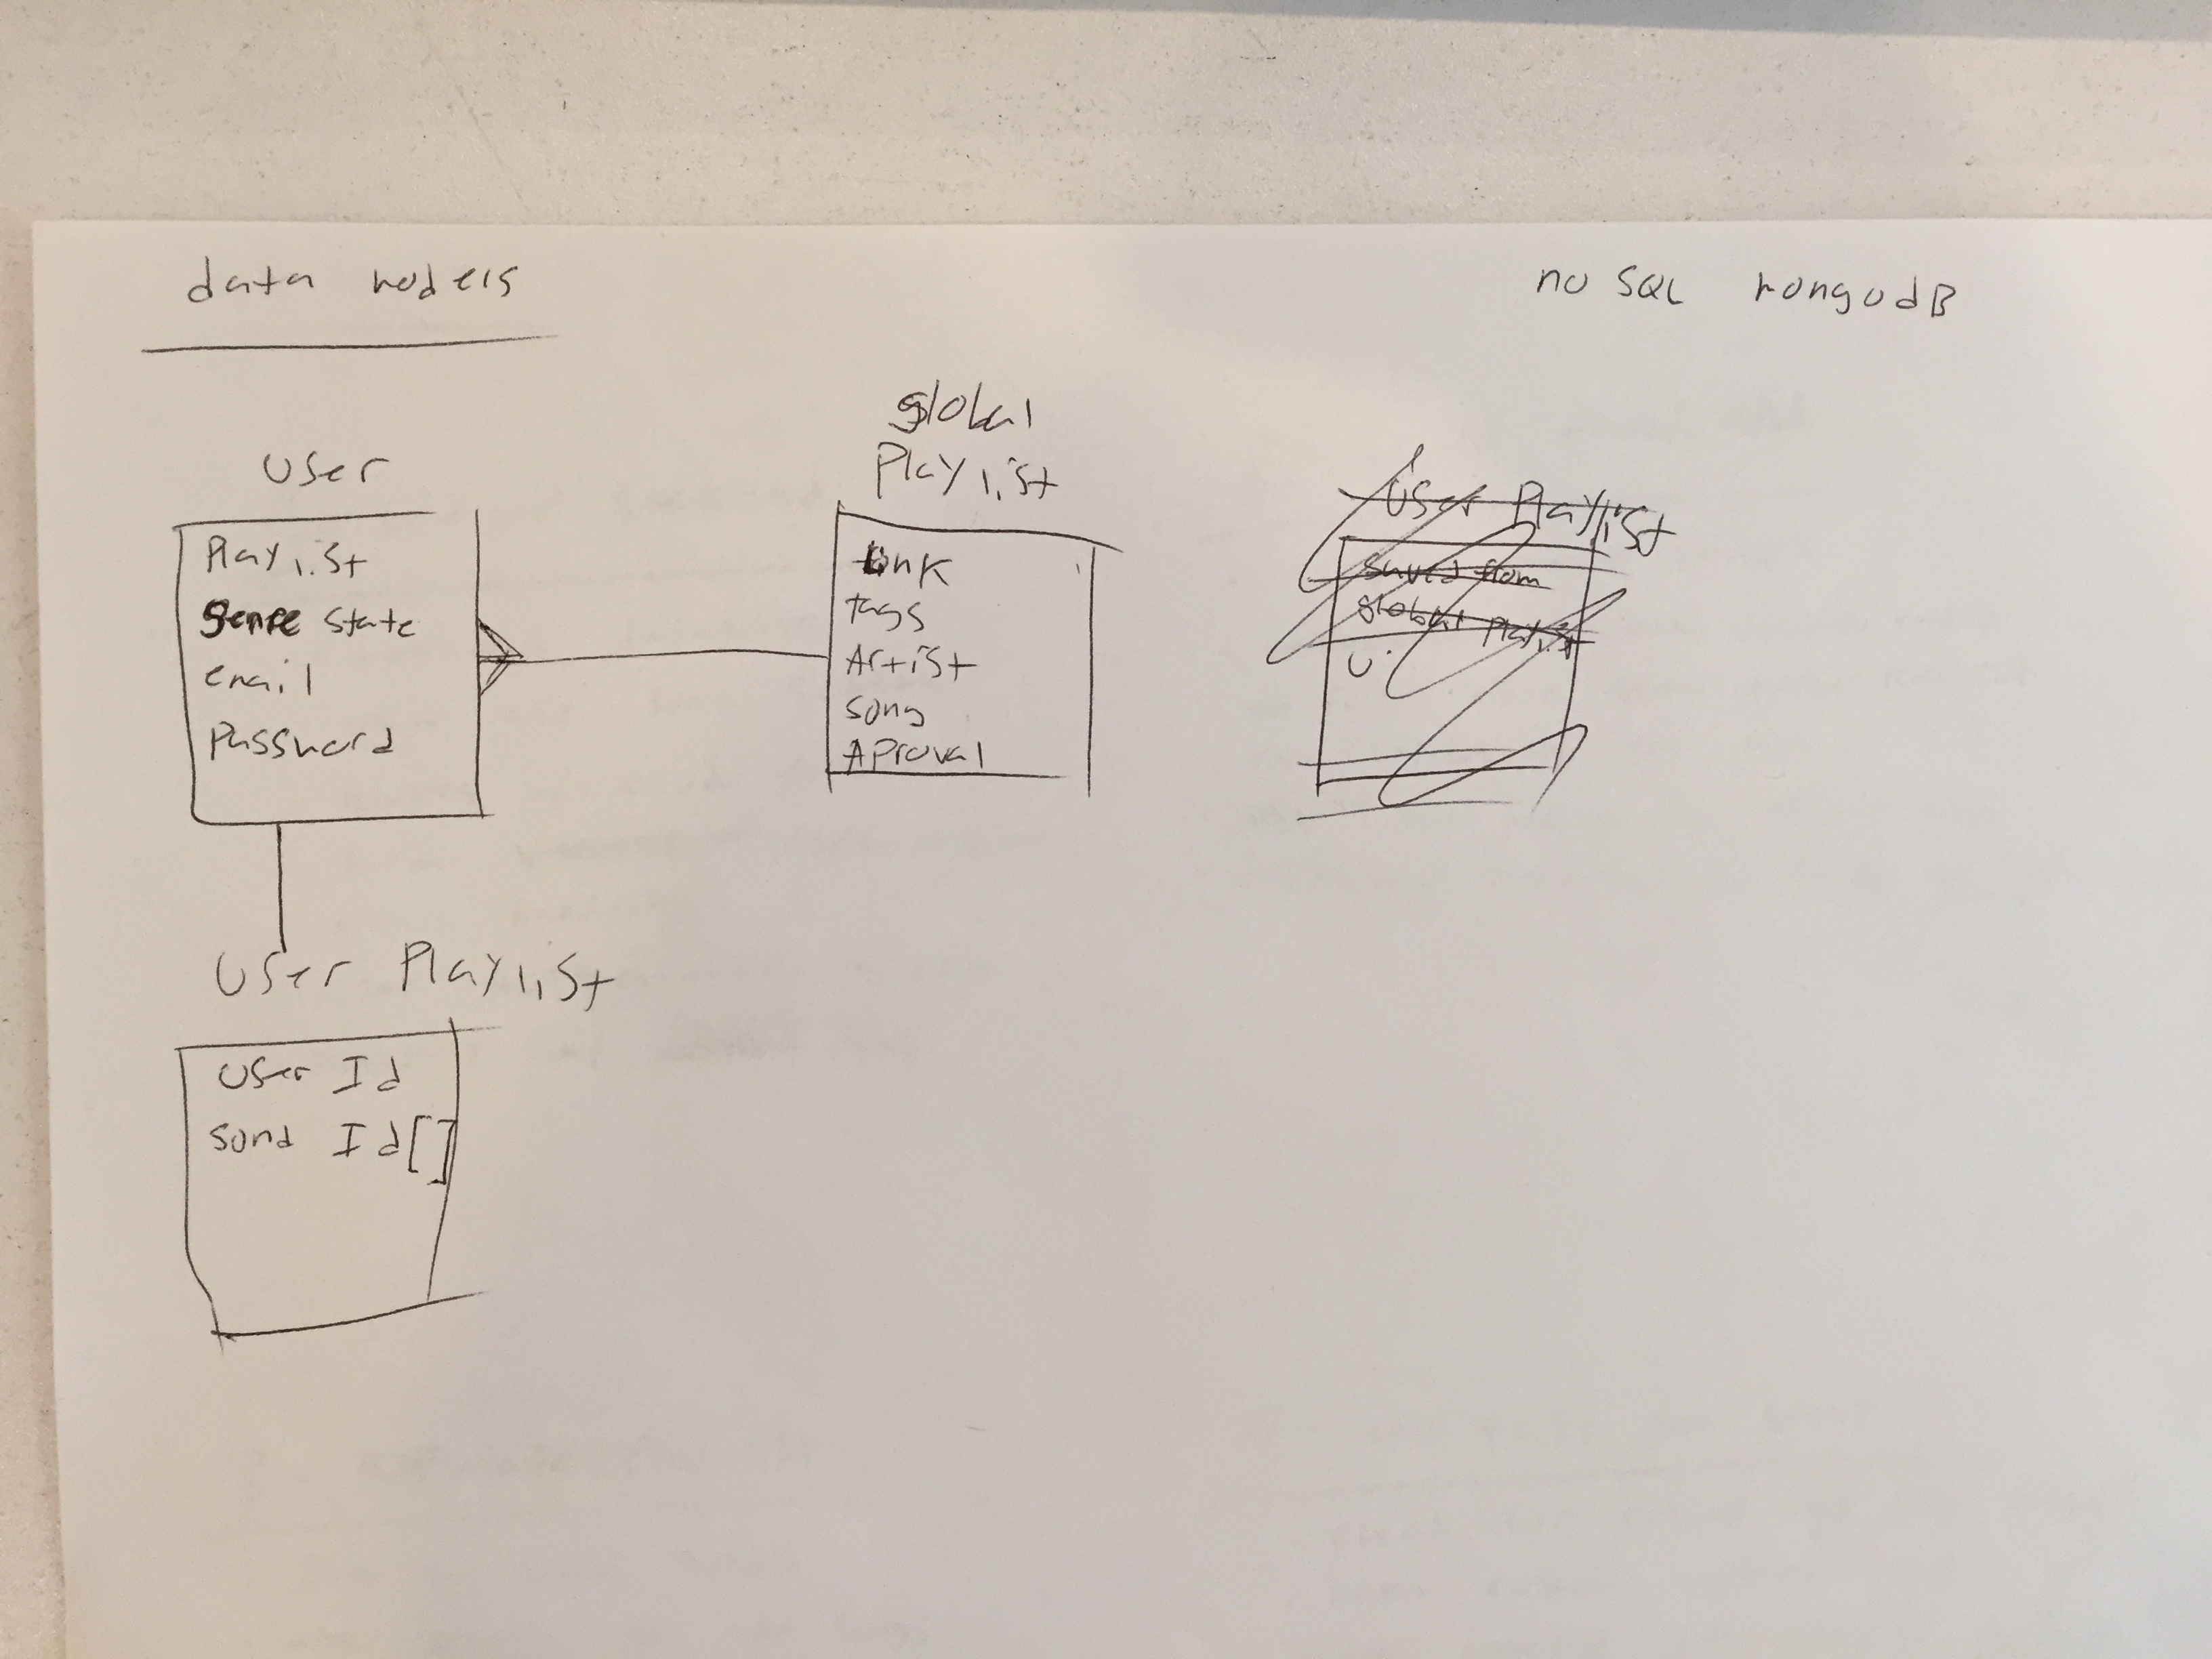 data models
no SQL mongodB
User
Playlist
genre state
email
Password
global
Playlist
Link
tags
Artist
song
Aproval
User Playlist
saved from
global Playlist
U
User Playlist
User Id
sond Id[]